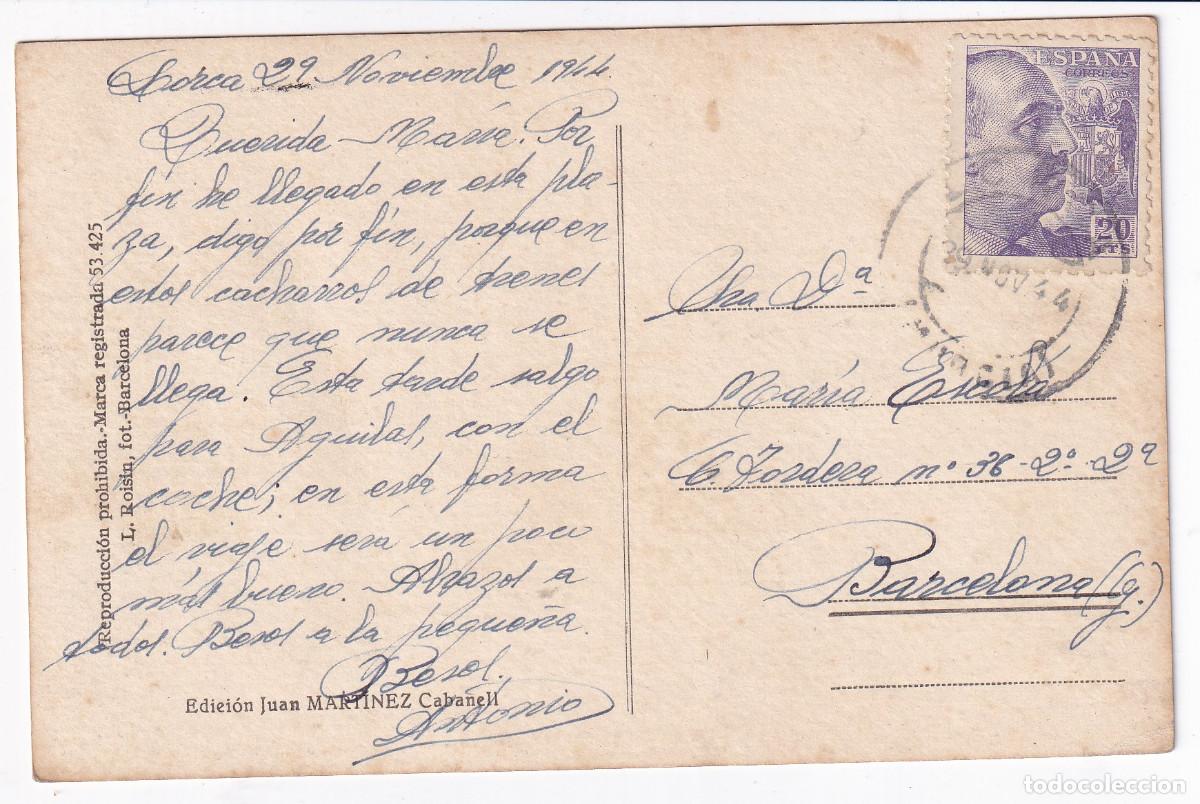 Lorca 29 Noviembre 1944.
Querida María. Por
fin he llegado en esta pla-
za, digo por fin, porque en
estos cacharros de trenes
parece que nunca se
llega. Esta tarde salgo
para Aguilas, con el
coche; en esta forma
el viaje será un poco
más bueno. Abrazos a
todos. Besos a la pequeña.
Besos.
Antonio
Edición Juan MARTÍNEZ Cabañell
Reproducción prohibida.-Marca registrada 53.425
L. Roisin, fot.-Barcelona
ESPAÑA
CORREOS
20
CTS
29 NOV 44
Sra. Dª
María
C/ Tordera nº 36-2º-2ª
Barcelona (g.)
todocoleccion